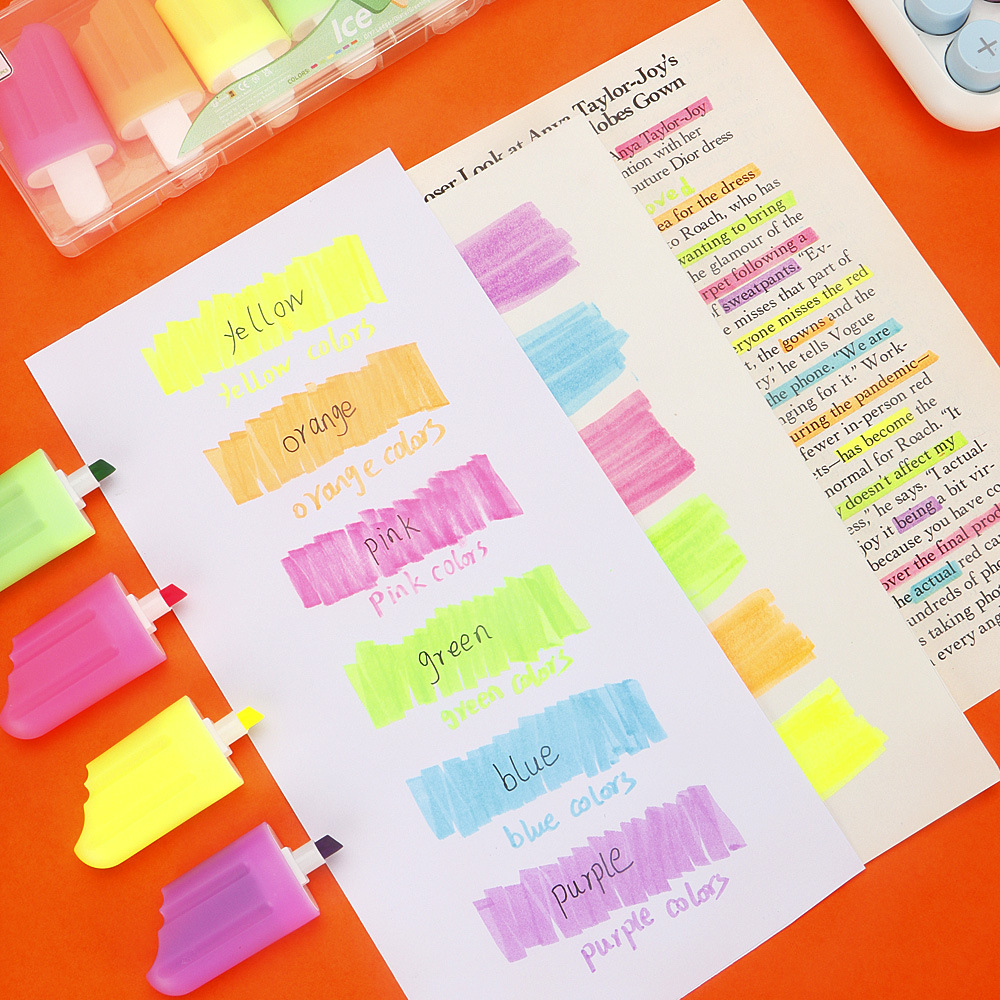 Ice
COLORS:
yellow
yellow colors
orange
orange colors
pink
pink colors
green
green colors
blue
blue colors
purple
purple colors
Look at Anya Taylor-Joy's
Gown
Anya Taylor-Joy
with her
Dior dress
for the dress
to Roach, who has
wanting to bring
the glamour of the
following a
of sweatpants. "Ev-
misses that part of
everyone misses the red
the gowns and the
he tells Vogue
the phone. "We are
for it." Work-
during the pandemic—
fewer in-person red
has become the
normal for Roach. "It
doesn't affect my
he says. "I actual-
it being a bit vir-
because you have
over the final
the actual red
hundreds of
taking
every